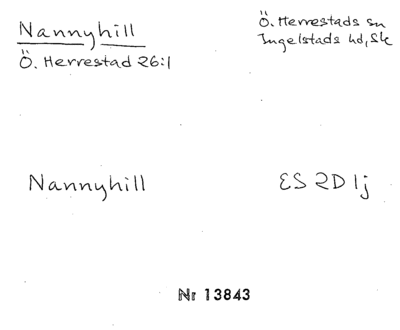 Nannyhill
Ö. Herrestad 26:1
Ö. Herrestads sn
Ingelstads hd, Sk
Nannyhill
ES 2D 1j
Nr 13843